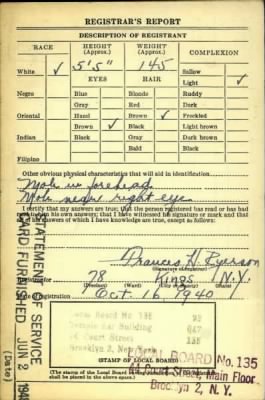 REGISTRAR'S REPORT
DESCRIPTION OF REGISTRANT
RACE HEIGHT (Approx.) WEIGHT (Approx.) COMPLEXION
White ✓ 5'5" 145 Sallow
EYES HAIR Light ✓
Negro Blue Blonde Ruddy
Gray Red Dark
Oriental Hazel Brown ✓ Freckled
Brown ✓ Black Light brown
Indian Black Gray Dark brown
Bald Black
Filipino
Other obvious physical characteristics that will aid in identification
Mole on forehead
Mole near right eye
I certify that my answers are true; that the person registered has read or has had
read to him his own answers; that I have witnessed his signature or mark and that
all of his answers of which I have knowledge are true, except as follows:
Frances H. Ryerson
(Signature of registrar)
Registrar for 78 Kings N.Y.
(Precinct) (Ward) (City or county) (State)
Date of registration Oct. 16 1940
Local Board No 135
Temple Bar Building
44 Court Street
Brooklyn 2, New York
LOCAL BOARD No. 135
44 Court Street, Main Floor
Brooklyn 2, N. Y.
(STAMP OF LOCAL BOARD)
(The stamp of the Local Board
shall be placed in the above space.)
STATEMENT OF SERVICE
CARD FURNISHED JUN 2
(Date)